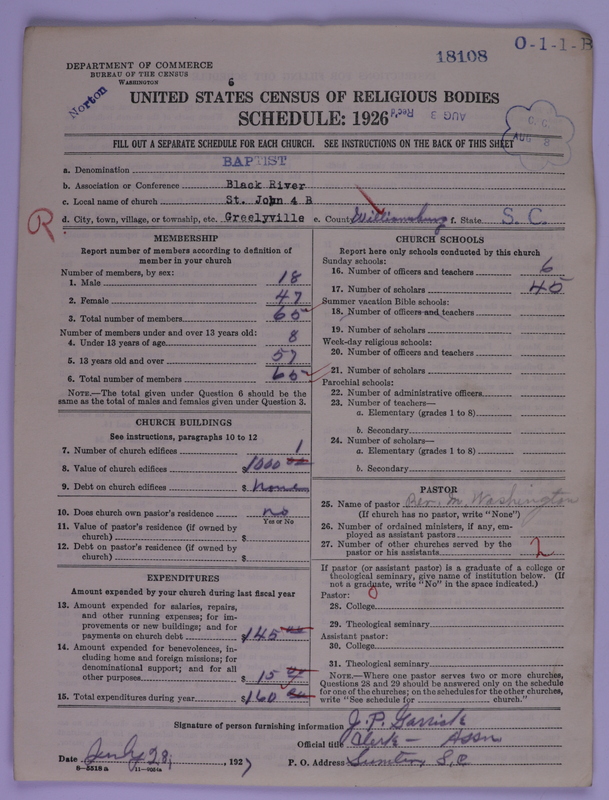 18108
O-1-1-B
DEPARTMENT OF COMMERCE
BUREAU OF THE CENSUS
WASHINGTON
6
Norton
UNITED STATES CENSUS OF RELIGIOUS BODIES
SCHEDULE: 1926
Rec'd AUG 3
FILL OUT A SEPARATE SCHEDULE FOR EACH CHURCH. SEE INSTRUCTIONS ON THE BACK OF THIS SHEET
a. Denomination BAPTIST
b. Association or Conference Black River
c. Local name of church St. John 4 B
d. City, town, village, or township, etc. Greelyville e. County Williamsburg f. State S. C.
R
MEMBERSHIP
Report number of members according to definition of
member in your church
Number of members, by sex:
1. Male 18
2. Female 47
3. Total number of members 65
Number of members under and over 13 years old:
4. Under 13 years of age 8
5. 13 years old and over 57
6. Total number of members 65
NOTE.—The total given under Question 6 should be
same as the total of males and females given under Question 3.
CHURCH BUILDINGS
See instructions, paragraphs 10 to 12
7. Number of church edifices 1
8. Value of church edifices $1000 00
9. Debt on church edifices $ None
10. Does church own pastor's residence no
Yes or No
11. Value of pastor's residence (if owned by
church) $
12. Debt on pastor's residence (if owned by
church) $
EXPENDITURES
Amount expended by your church during last fiscal year
13. Amount expended for salaries, repairs,
and other running expenses; for im-
provements or new buildings; and for
payments on church debt $145
14. Amount expended for benevolences, in-
cluding home and foreign missions; for
denominational support; and for all
other purposes $15
15. Total expenditures during year $160
CHURCH SCHOOLS
Report here only schools conducted by this church
Sunday schools:
16. Number of officers and teachers 6
17. Number of scholars 45
Summer vacation Bible schools:
18. Number of officers and teachers
19. Number of scholars
Week-day religious schools:
20. Number of officers and teachers
21. Number of scholars
Parochial schools:
22. Number of administrative officers
23. Number of teachers—
a. Elementary (grades 1 to 8)
b. Secondary
24. Number of scholars—
a. Elementary (grades 1 to 8)
b. Secondary
PASTOR
25. Name of pastor Rev. M. Washington
(If church has no pastor, write "None")
26. Number of ordained ministers, if any, em-
ployed as assistant pastors
27. Number of other churches served by the
pastor or his assistants 2
If pastor (or assistant pastor) is a graduate of a college or
theological seminary, give name of institution below. (If
not a graduate, write "No" in the space indicated.)
Pastor:
28. College
29. Theological seminary
Assistant pastor:
30. College
31. Theological seminary
NOTE.—Where one pastor serves two or more churches,
Questions 28 and 29 should be answered only on the schedule
for one of the churches; on the schedules for the other churches,
write "See schedule for church."
Signature of person furnishing information J. P. Garrick
Official title Clerk — Assn
Date July 28, 1927 P. O. Address Sumter, S. C
8—5518 a 11—9054a